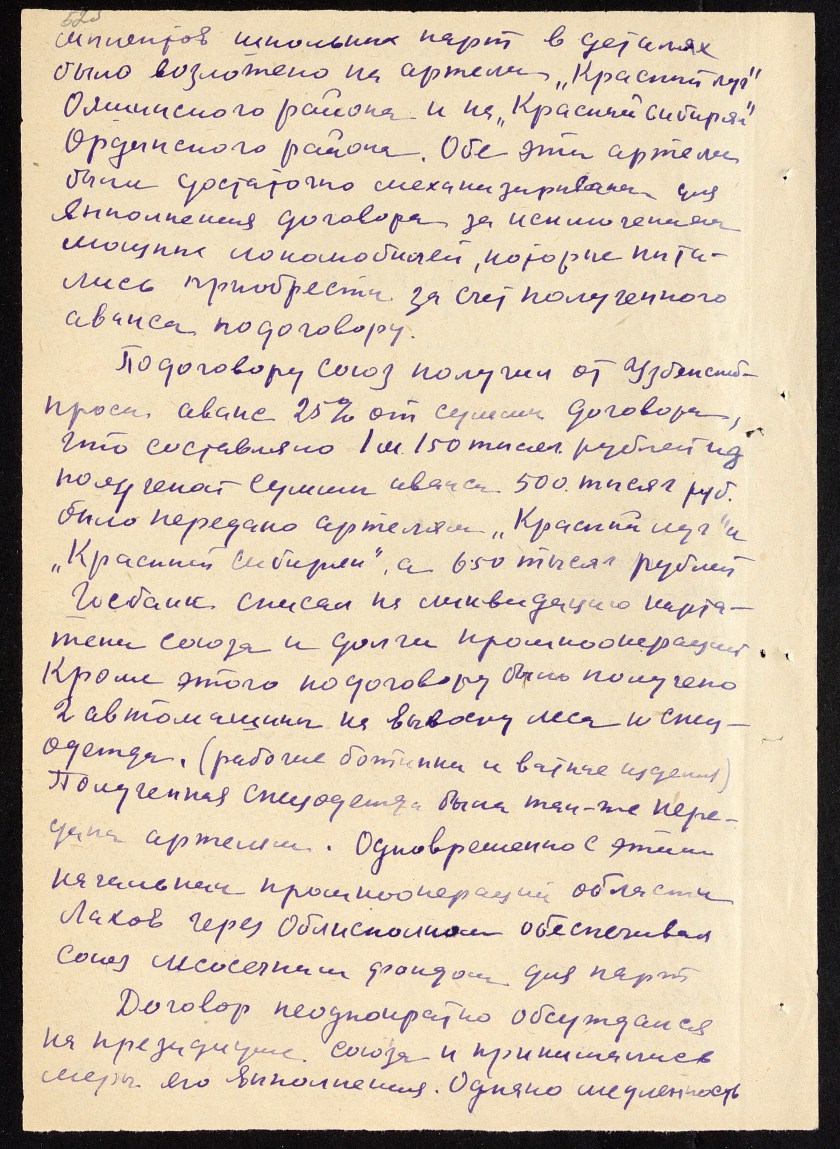 школьных парт в деталях
было возложено на артели „Красный луч"
района и на „Красный Сибиряк"
Ордынского района. Обе эти артели
были достаточно механизированы для
выполнения договора за исключением
мощных локомобилей, которые пыта-
лись приобрести за счет полученного
аванса по договору.
По договору союз получил от
аванс 25% от суммы договора,
что составляло 1 м. 150 тысяч рублей из
полученой суммы аванса 500 тысяч руб.
было передано артелям „Красный луч" и
„Красный Сибиряк", а 650 тысяч рублей
Госбанк списал на ликвидацию карто-
теки союза и долги промкооперации
Кроме этого по договору было получено
2 автомашины на вывозку леса и спец-
одежда. (рабочие ботинки и ватные изделия)
Полученная спецодежда была так-же пере-
дана артелям. Одновременно с этим
начальник промкооперации области
Лахов через Облисполком обеспечивал
союз лесосечным фондом для парт
Договор неоднократно обсуждался
на президиуме союза и принимались
меры его выполнения. Однако медленность